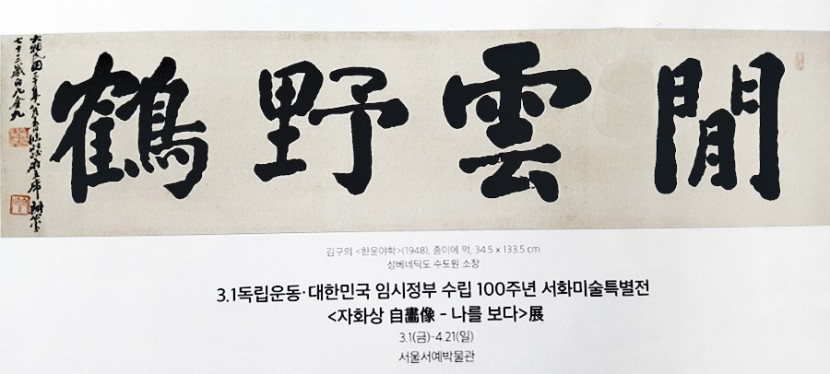 閒雲野鶴
大韓民國三十年
七十三歲白凡金九
김구의 <한운야학>(1948), 종이에 먹, 34.5 x 133.5 cm
성베네딕도 수도원 소장
3.1독립운동·대한민국 임시정부 수립 100주년 서화미술특별전
<자화상 自畵像 - 나를 보다>展
3.1(금)-4.21(일)
서울서예박물관